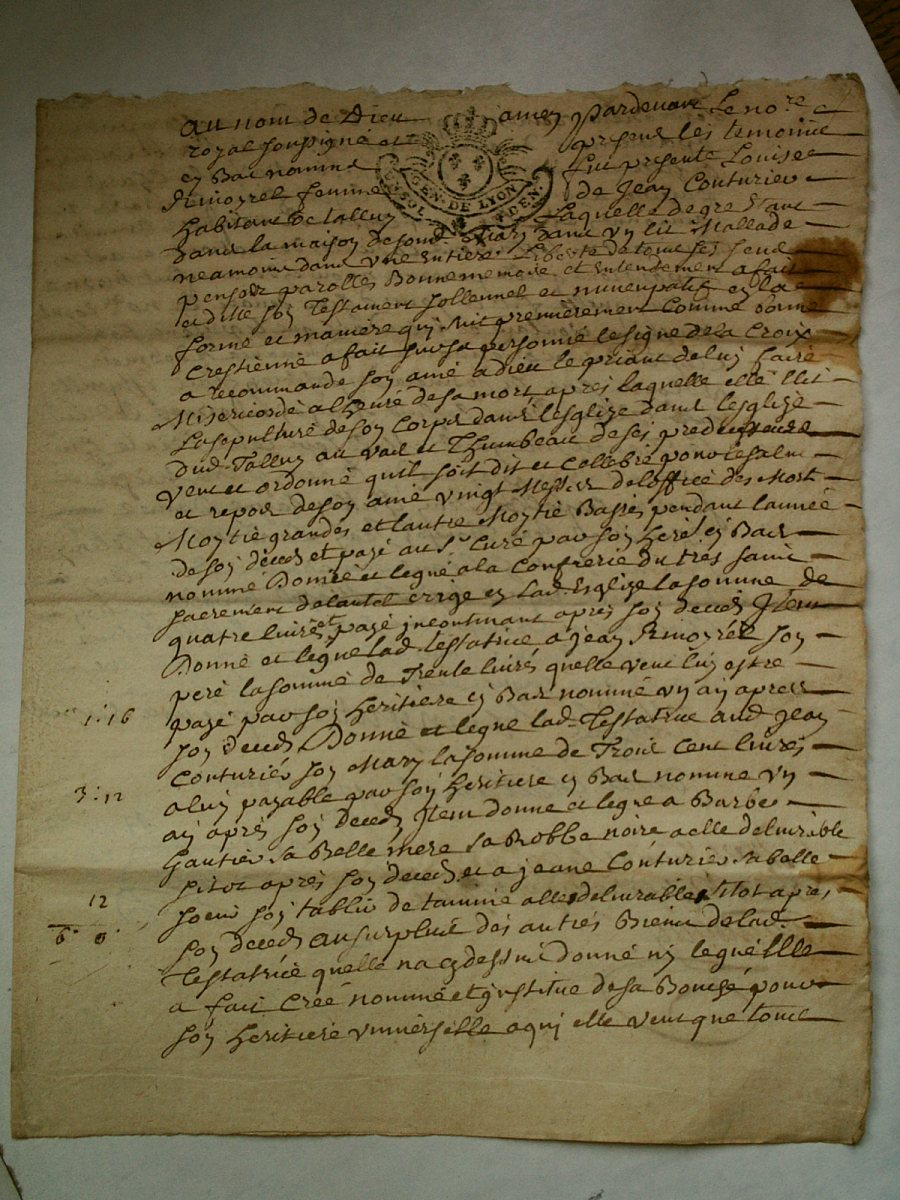 au nom de Dieu amen Pardevant Le no.re
royal soussigné et presens les temoins
cy Bas nommes fut presente Louise
femme de Jean Couturier
habitant de talluy Laquelle de gre Etant
Dans la maison de son Mary Dans un lit Mallade
neamoins dans une Entiere Liberte de tous ses sens
pensees parolles Bonne memoire et Entendement a fait
et dicté son Testament sollennel et nuncupatif en la
forme et maniere quy suit premierement Comme bonne
Crestienne a fait sur sa personne le signe de la Croix
a recommande son ame a dieu le priant de luy faire
Misericorde a lheure de sa mort apres laquelle elle Elit
La sepulture de son Corps dans lesglize dans lesglize
Dud. Talluy au vas et Thumbeau de ses predecesseurs
veut et ordonne quil soit dit et cellebré pour le salut
et repos de son ame vingt Messes de loffice des Morts
Moytie grandes et lautre Moytie Basses pendant lannee
de son deces et payé au Sr. Curé par son heré. cy Bas
nommé Donne et legue a la Confrerie du tres saint
sacrement de lautel errige en lad. Esglize la somme de
quatre livres et payé incontinant apres son deces Item
Donne et legue lad. testatrice a jean son
pere la somme de Trente livres quelle veut luy estre
payé par son heritiere cy Bas nommé un an apres
son deces Donne et legue lad. Testatrice aud. Jean
Couturier son Mary la somme de Trois Cent livres
a luy payable par son heritiere cy Bas nomme un
an apres son deces Item donne et legue a Barbe
Gautier sa Belle mere sa Robbe noire a elle delivrable
sitot apres son deces et a jeane Couturier sa belle
soeur son tablier de tamine a elle delivrable sitot apres
son deces au surplus des autres Biens de lad.
Testatrice quelle na cy dessus donné ny legué Elle
a fait Creé nommé et institue de sa Bouche pour
son heritiere universelle a quy elle veut que tous
1:16
3:12
12
6. 0.
GEN. DE LYON